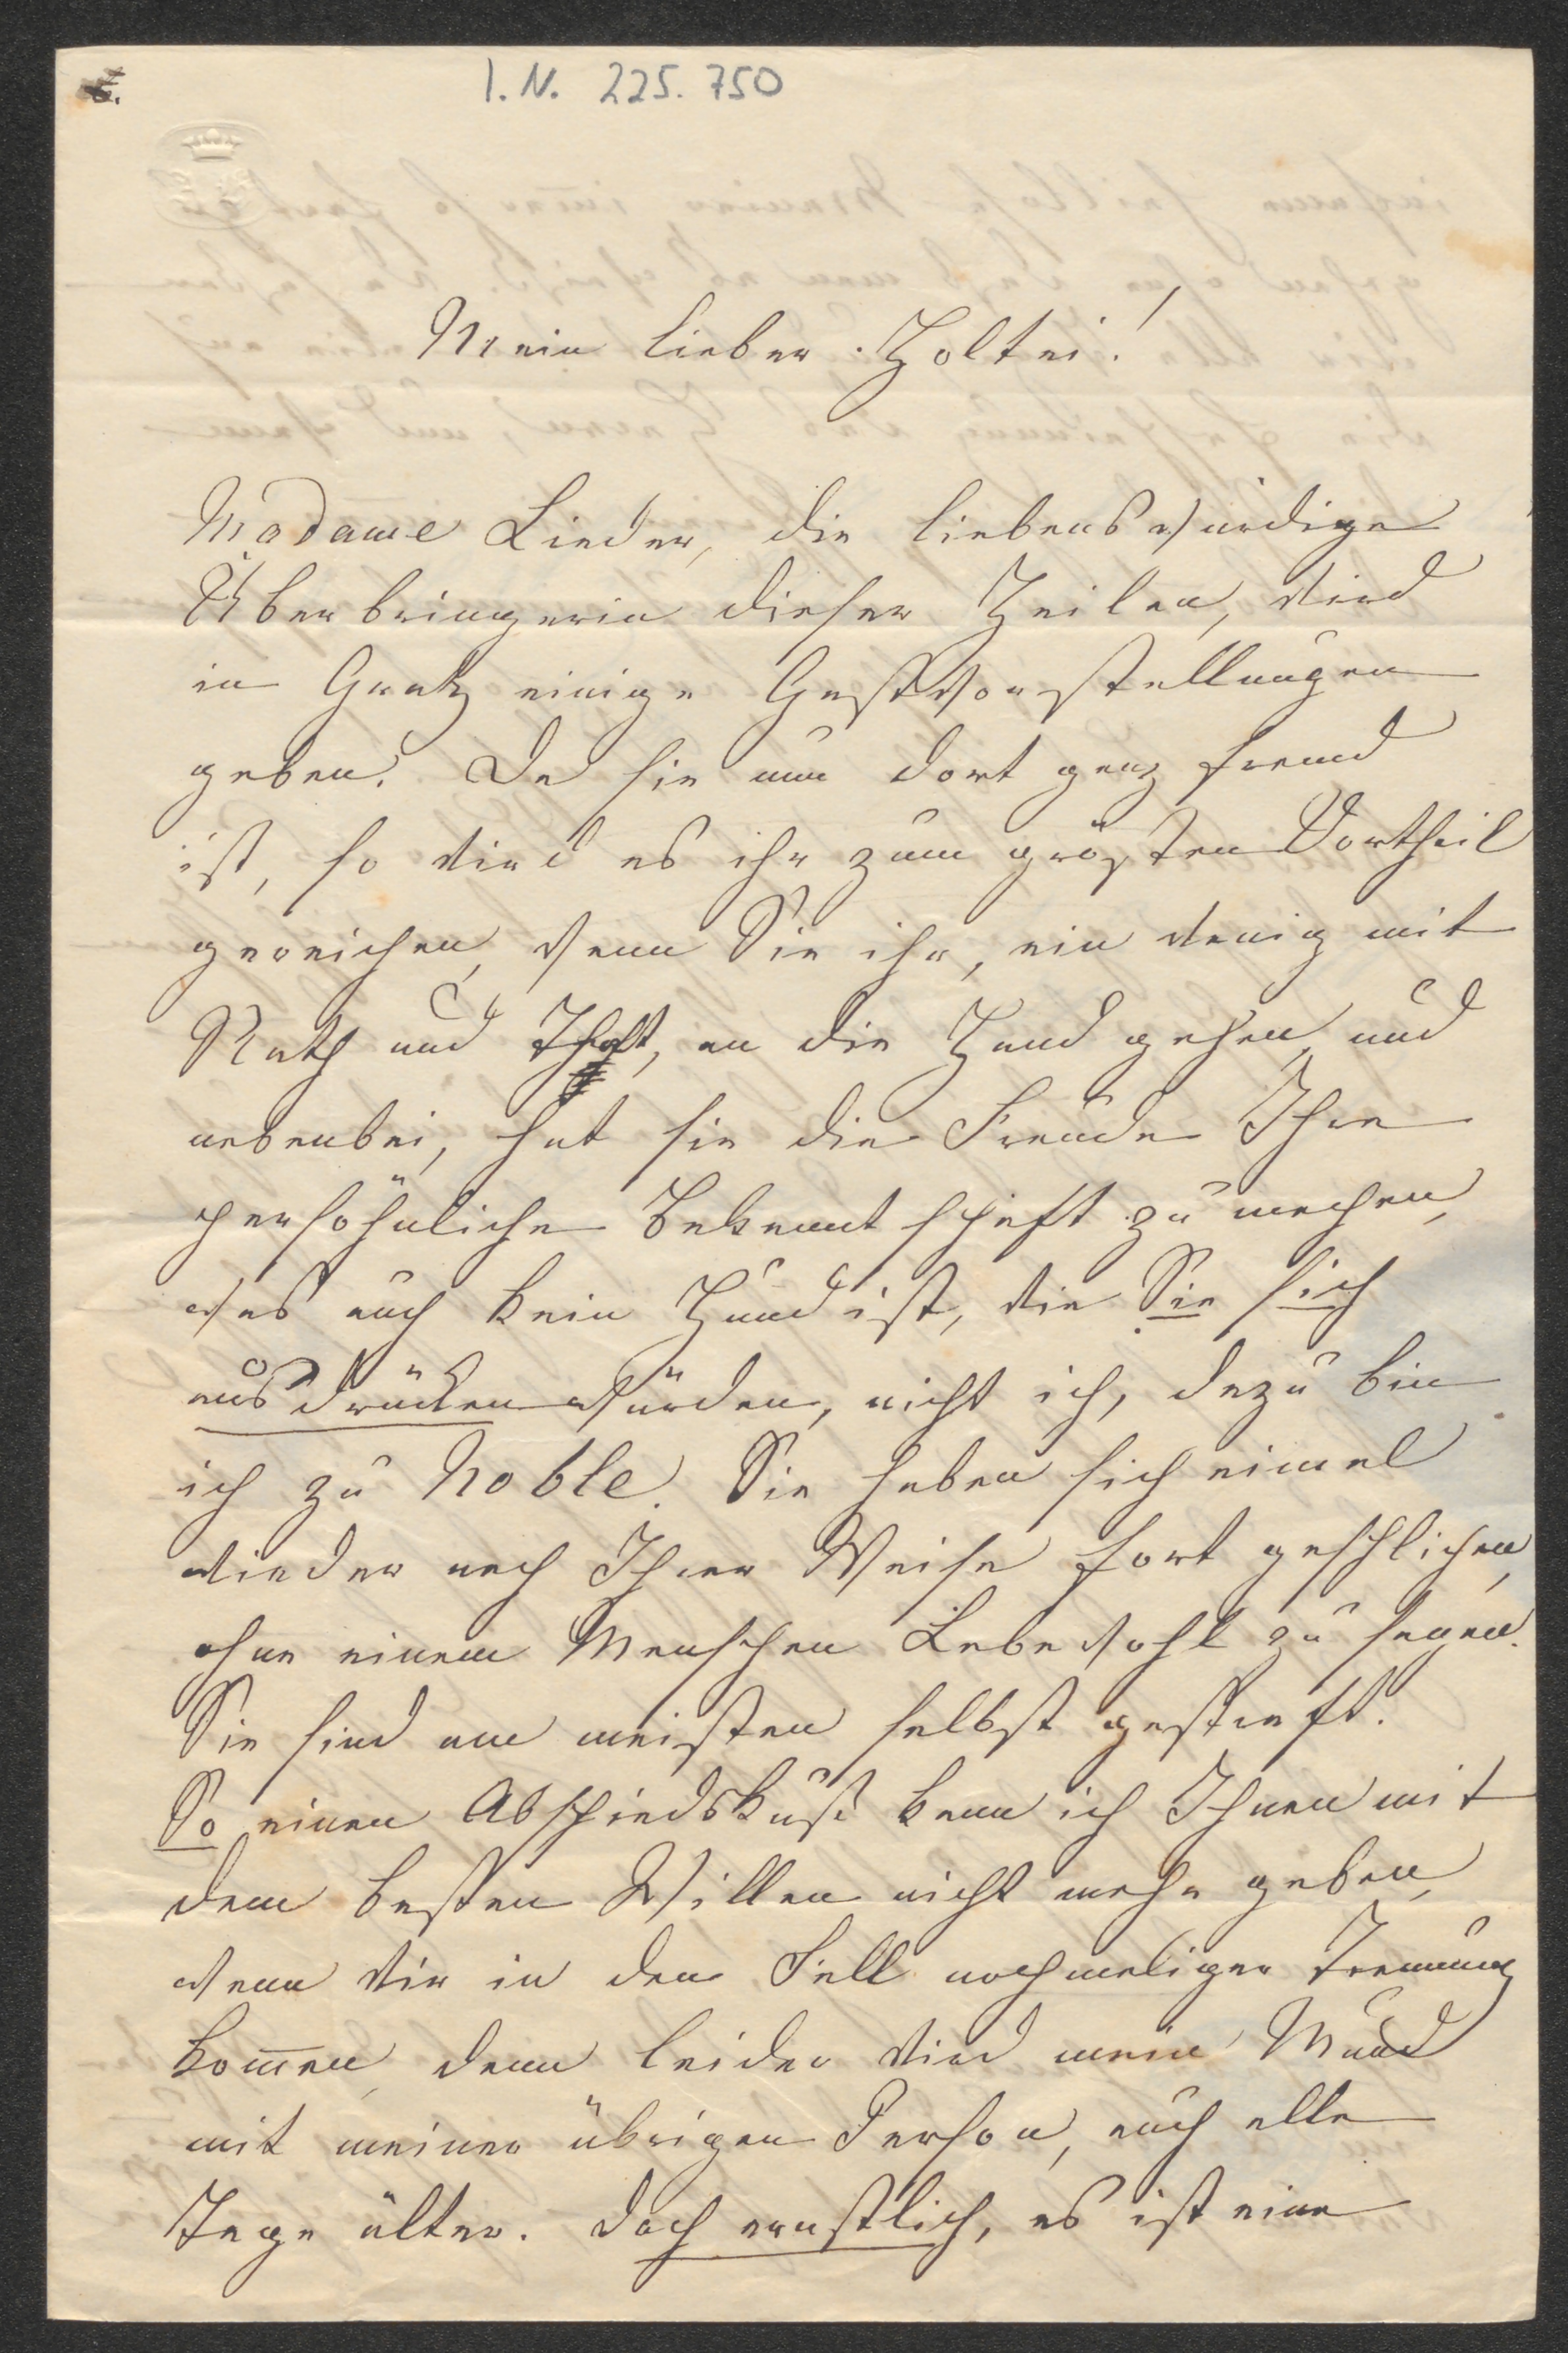 I.N. 225.750
Mein lieber Holtei!
Madame Lieder, die liebenswürdige
Überbringerin dieser Zeilen, wird
in Gratz einige Gastvorstellungen
geben. Da sie nun dort ganz fremd
ist, so wird es ihr zum größten Vortheil
gereichen, wenn Sie ihr, ein wenig mit
Rath und That, an die Hand gehen, und
nebenbei, hat sie die Freude Ihre
persöhnliche Bekanntschaft zu machen,
was auch kein Hund ist, wie Sie sich
ausdrücken würden, nicht ich, dazu bin
ich zu Noble. Sie haben sich einmal
wieder nach Ihrer Weise fort geschlichen,
ohne einem Menschen Lebewohl zu sagen.
Sie sind am meisten selbst gestraft.
So einen Abschiedskuß kann ich Ihnen mit
dem besten Willen nicht mehr geben,
wenn wir in den Fall nochmaliger Trennung
kom̅en, denn leider wird mein Mund
mit meiner übrigen Person, auch alle
Tage älter. Doch ernstlich, es ist eine